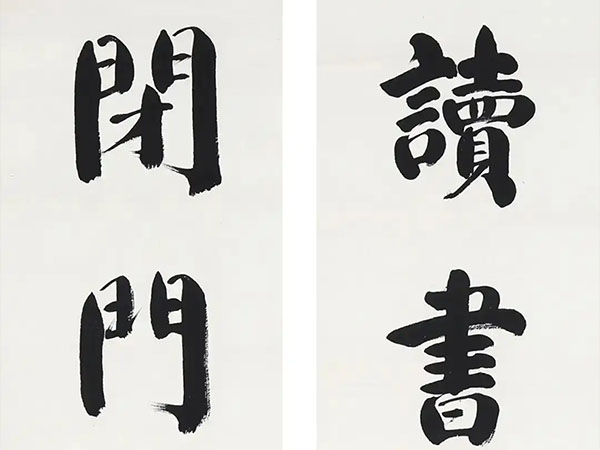 讀書
閉門